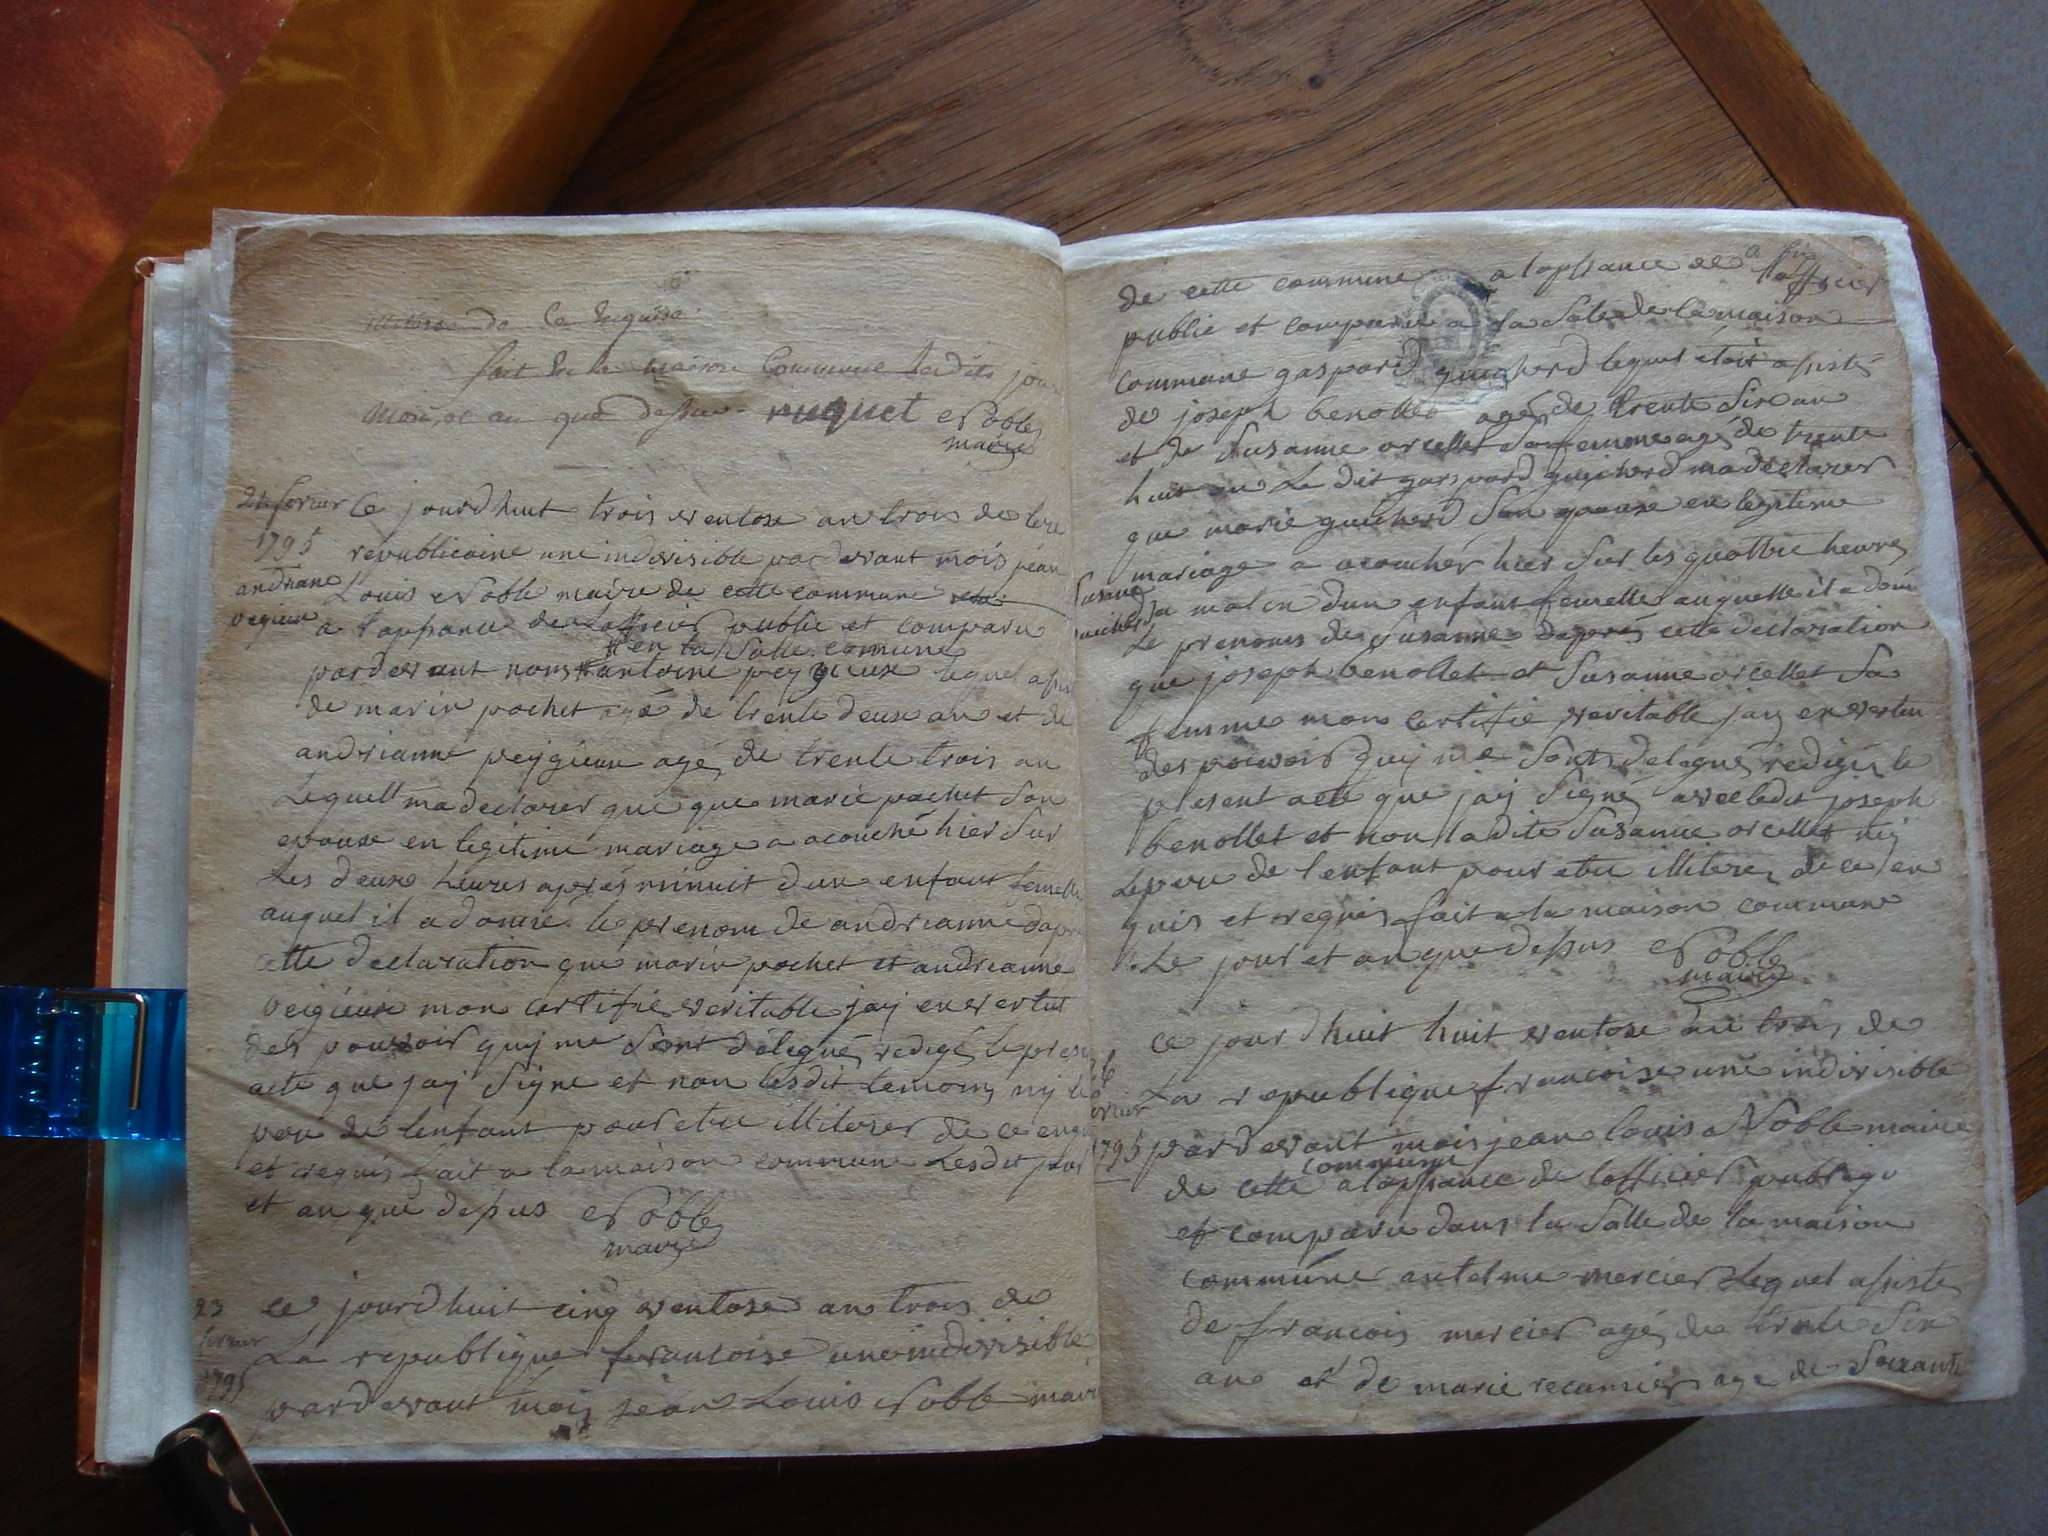 fait a la maison Commune lesdits jour
mois, et an que dessus. ruquet Noble
maire
21 fevrier
1795
andrianne
peigieux
Ce jourdhuit trois ventose an trois de lere
republicaine une indivisible par devant mois jean
Louis Noble maire de cette commune
a lapsance de lofficier public et comparu
en la Salle comune
pardevant nous antoine peygieux lequel asist
de marin pochet agé de trente deux an et de
andrianne peijgieux agé de trente trois an
Lequell ma declarer que que marie pochet Son
epouse en legitime mariage a acouché hier Sur
Les deux heures apres minuit dun enfant femelle
auquel il a donné le prenom de andrianne dapre
cette declaration que marin pochet et andrianne
peigieux mon certifie veritable jaij en vertut
des pouvoir quij me Sont délegué redigé le prese
acte que jaij Signe et non lesdit temoin nij le
pere de lenfant pour etre illiterer de ce enqui
et requis fait a la maison commune Lesdit jour
et an que depsus Noble
maire
23
fevrier
1795
ce jourdhuit cinq ventose an trois de
La republique francoise une indivisible
pardevant moij jean Louis Noble maire
de cette commune a lapsance de lofficier
public et comparu a la Sale de la maison
commune gaspard guicherd lequel etoit asisté
de joseph benollet agé de trente Six an
et de Susanne orcellet Sa femme agé de trente
huit an Le dit gaspard guicherd ma declarer
que marie guicherd Son epouse en legitime
mariage a acoucher hier Sur les quattre heures
Susanne
guicherd
du matin dun enfant femelle auquelle il a doné
Le prenoms de Susanne dapres cette declaration
que joseph benollet et Susanne orcellet Sa
femme mon certifie veritable jaij en vertu
des pouvoir quij me Sont delegué redigé le
present acte que jaij Signé avec ledit joseph
benollet et non ladite Susanne orcellet nij
Lepere de lenfant pour etre illiterer de ce en
quis et requis fait a la maison commune
Le jour et an que depsus Noble
maire
fevrier
1795
ce jourdhuit huit ventose an trois de
La republique francoise une indivisible
pardevant mois jean louis Noble maire
de cette commune a lapsance de lofficier publiqu
et comparu dans la Salle de la maison
commune antelme mercier Lequel asisté
de francois mercier agé de trente Six
ans et de marie recamier agé de Soixante